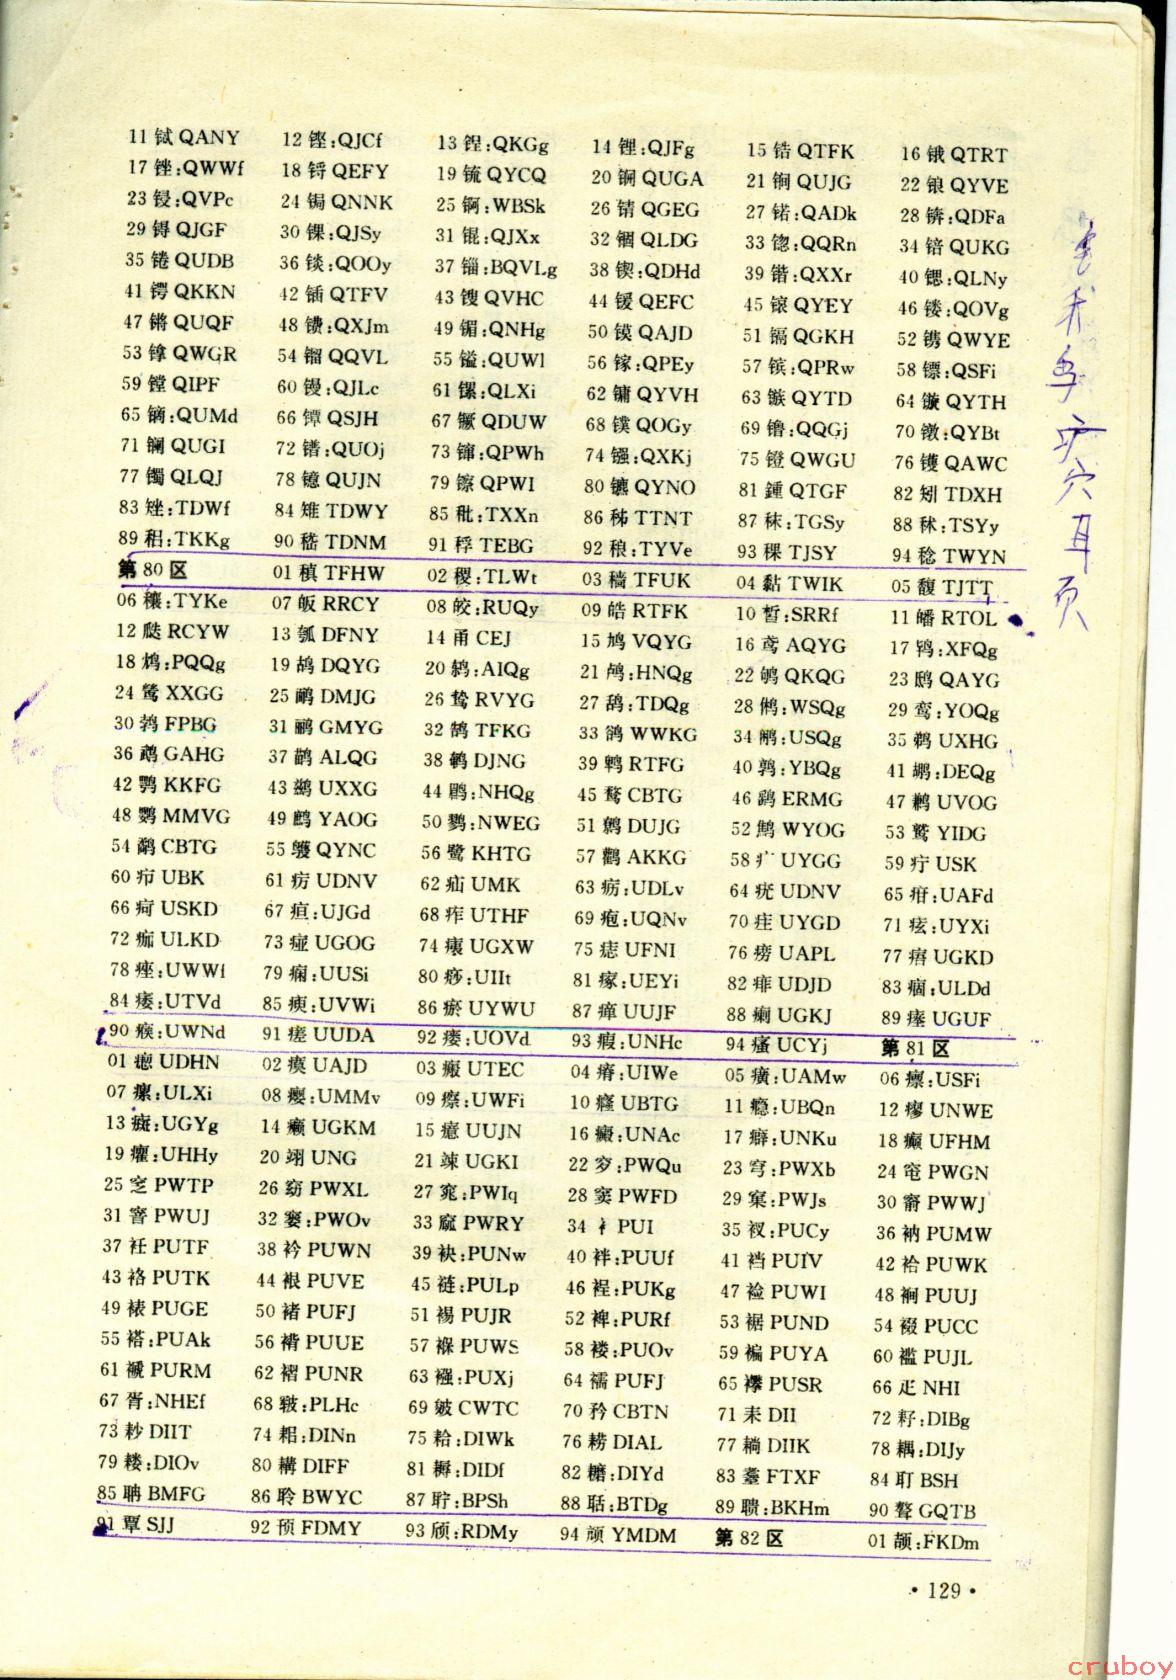 11 铽 QANY 12 铿:QJCf 13 锃:QKGg 14 锂:QJFg 15 锆 QTFK 16 锇 QTRT
17 锉:QWWf 18 锊 QEFY 19 锍 QYCQ 20 锎 QUGA 21 锏 QUJG 22 锒 QYVE
23 锓:QVPc 24 锔 QNNK 25 锕:WBSk 26 锖 QGEG 27 锘:QADk 28 锛:QDFa
29 锝 QJGF 30 锞:QJSy 31 锟:QJXx 32 锢 QLDG 33 锪:QQRn 34 锫 QUKG
35 锩 QUDB 36 锬:QOOy 37 锱:BQVLg 38 锲:QDHd 39 锴:QXXr 40 锶:QLNy
41 锷 QKKN 42 锸 QTFV 43 锼 QVHC 44 锾 QEFC 45 锿 QYEY 46 镂:QOVg
47 锵 QUQF 48 镄:QXJm 49 镅:QNHg 50 镆 QAJD 51 镉 QGKH 52 镌 QWYE
53 镎 QWGR 54 镏 QQVL 55 镒:QUWl 56 镓:QPEy 57 镔:QPRw 58 镖:QSFi
59 镗 QIPF 60 镘:QJLc 61 镙:QLXi 62 镛 QYVH 63 镞 QYTD 64 镟 QYTH
65 镝:QUMd 66 镡 QSJH 67 镢 QDUW 68 镤 QOGy 69 镥:QQGj 70 镦:QYBt
71 镧 QUGI 72 镨:QUOj 73 镩:QPWh 74 镪:QXKj 75 镫 QWGU 76 镬 QAWC
77 镯 QLQJ 78 镱 QUJN 79 镲 QPWI 80 镳 QYNO 81 锺 QTGF 82 矧 TDXH
83 矬:TDWf 84 雉 TDWY 85 秕:TXXn 86 秭 TTNT 87 秣:TGSy 88 秫:TSYy
89 稆:TKKg 90 嵇 TDNM 91 稃 TEBG 92 稂:TYVe 93 稞 TJSY 94 稔 TWYN
第 80 区 01 稹 TFHW 02 稷:TLWt 03 穑 TFUK 04 黏 TWIK 05 馥 TJTT
06 穰:TYKe 07 皈 RRCY 08 皎:RUQy 09 皓 RTFK 10 皙:SRRf 11 皤 RTOL
12 瓞 RCYW 13 瓠 DFNY 14 甬 CEJ 15 鸠 VQYG 16 鸢 AQYG 17 鸨:XFQg
18 鸩:PQQg 19 鸪 DQYG 20 鸫:AIQg 21 鸬:HNQg 22 鸲 QKQG 23 鸱 QAYG
24 鸶 XXGG 25 鸸 DMJG 26 鸷 RVYG 27 鸹:TDQg 28 鸺:WSQg 29 鸾:YOQg
30 鹁 FPBG 31 鹂 GMYG 32 鹄 TFKG 33 鹆 WWKG 34 鹇:USQg 35 鹈 UXHG
36 鹉 GAHG 37 鹋 ALQG 38 鹌 DJNG 39 鹎 RTFG 40 鹑:YBQg 41 鹕:DEQg
42 鹗 KKFG 43 鹚 UXXG 44 鹛:NHQg 45 鹜 CBTG 46 鹞 ERMG 47 鹣 UVOG
48 鹦 MMVG 49 鹧 YAOG 50 鹨:NWEG 51 鹩 DUJG 52 鹪 WYOG 53 鹫 YIDG
54 鹬 CBTG 55 鹱 QYNC 56 鹭 KHTG 57 鹳 AKKG 58 疒 UYGG 59 疔 USK
60 疖 UBK 61 疠 UDNV 62 疝 UMK 63 疬:UDLv 64 疣 UDNV 65 疳:UAFd
66 疴 USKD 67 疸:UJGd 68 痄 UTHF 69 疱:UQNv 70 疰 UYGD 71 痃:UYXi
72 痂 ULKD 73 痖 UGOG 74 痍 UGXW 75 痣 UFNI 76 痨 UAPL 77 痦 UGKD
78 痤:UWWf 79 痫:UUSi 80 痧:UIIt 81 瘃:UEYi 82 痱 UDJD 83 痼:ULDd
84 痿:UTVd 85 瘐:UVWi 86 瘀 UYWU 87 瘅 UUJF 88 瘌 UGKJ 89 瘗 UGUF
90 瘊:UWNd 91 瘥 UUDA 92 瘘:UOVd 93 瘕:UNHc 94 瘙 UCYj 第 81 区
01 瘛 UDHN 02 瘼 UAJD 03 瘢 UTEC 04 瘠:UIWe 05 癀:UAMw 06 瘭:USFi
07 瘰:ULXi 08 瘿:UMMv 09 瘵:UWFi 10 癃 UBTG 11 瘾:UBQn 12 瘳 UNWE
13 癍:UGYg 14 癞 UGKM 15 癔 UUJN 16 癜:UNAc 17 癖:UNKu 18 癫 UFHM
19 癯:UHHy 20 翊 UNG 21 竦 UGKI 22 穸:PWQu 23 穹:PWXb 24 窀 PWGN
25 窆 PWTP 26 窈 PWXL 27 窕:PWIq 28 窦 PWFD 29 窠:PWJs 30 窬 PWWJ
31 窨 PWUJ 32 窭:PWOv 33 窳 PWRY 34 衤 PUI 35 衩:PUCy 36 衲 PUMW
37 衽 PUTF 38 衿 PUWN 39 袂:PUNw 40 袢:PUUf 41 裆 PUIV 42 袷 PUWK
43 袼 PUTK 44 裉 PUVE 45 裢:PULp 46 裎:PUKg 47 裣 PUWI 48 裥 PUUJ
49 裱 PUGE 50 褚 PUFJ 51 裼 PUJR 52 裨:PURf 53 裾 PUND 54 裰 PUCC
55 褡:PUAk 56 褙 PUUE 57 褓 PUWS 58 褛:PUOv 59 褊 PUYA 60 褴 PUJL
61 褫 PURM 62 褶 PUNR 63 襁:PUXj 64 襦 PUFJ 65 襻 PUSR 66 疋 NHI
67 胥:NHEf 68 皲:PLHc 69 皴 CWTC 70 矜 CBTN 71 耒 DII 72 耔:DIBg
73 耖 DIIT 74 耜:DINn 75 耠:DIWk 76 耢 DIAL 77 耥 DIIK 78 耦:DIJy
79 耧:DIOv 80 耩 DIFF 81 耨:DIDf 82 耱:DIYd 83 耋 FTXF 84 耵 BSH
85 聃 BMFG 86 聆 BWYC 87 聍:BPSh 88 聒:BTDg 89 聩:BKHm 90 聱 GQTB
91 覃 SJJ 92 顸 FDMY 93 颀:RDMy 94 颃 YMDM 第 82 区 01 颉:FKDm
·129·
疒穴耳页
cruboy